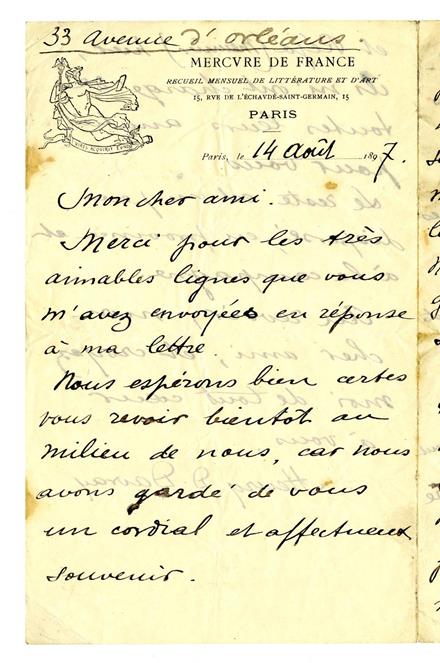 33 avenue d'orléans
MERCVRE DE FRANCE
RECUEIL MENSUEL DE LITTÉRATURE ET D'ART
15, RVE DE L'ÉCHAVDÉ-SAINT-GERMAIN, 15
PARIS
Paris, le 14 Août 1897.
Mon cher ami.
Merci pour les très
aimables lignes que vous
m'avez envoyées en réponse
à ma lettre.
Nous espérons bien certes
vous revoir bientot au
milieu de nous, car nous
avons gardé de vous
un cordial et affectueux
souvenir.